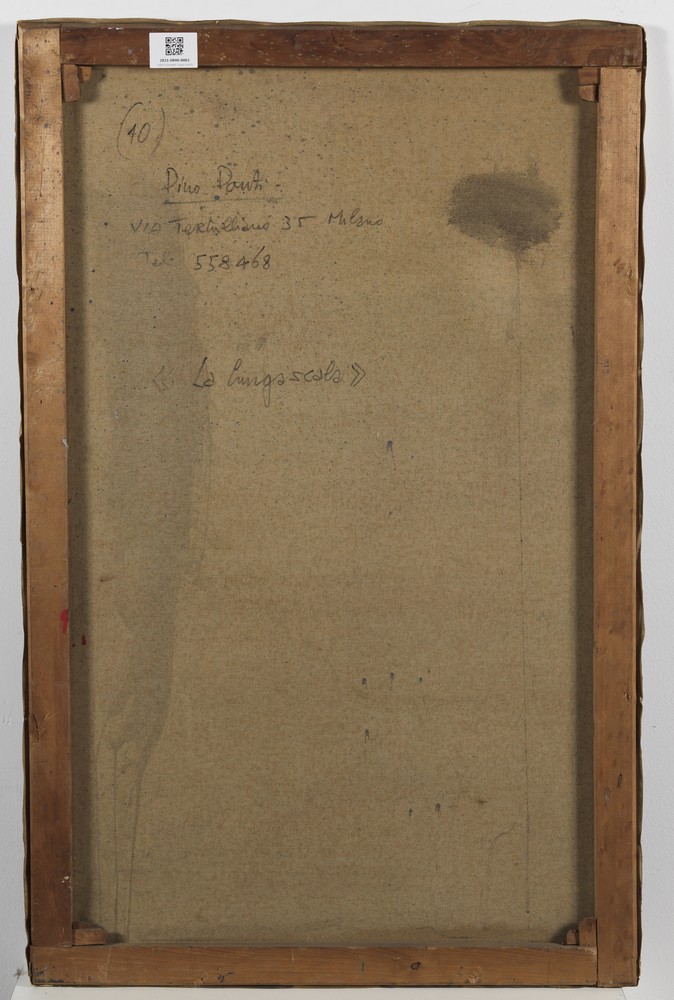 (10)
Pino Ponti
Via Tertulliano 35 Milano
Tel. 558468
« La lunga scala »